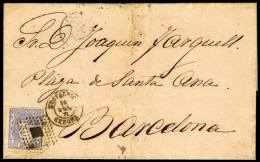 Sr. D. Joaquin Farguell
Plaza de Santa Ana
Barcelona
GERONA